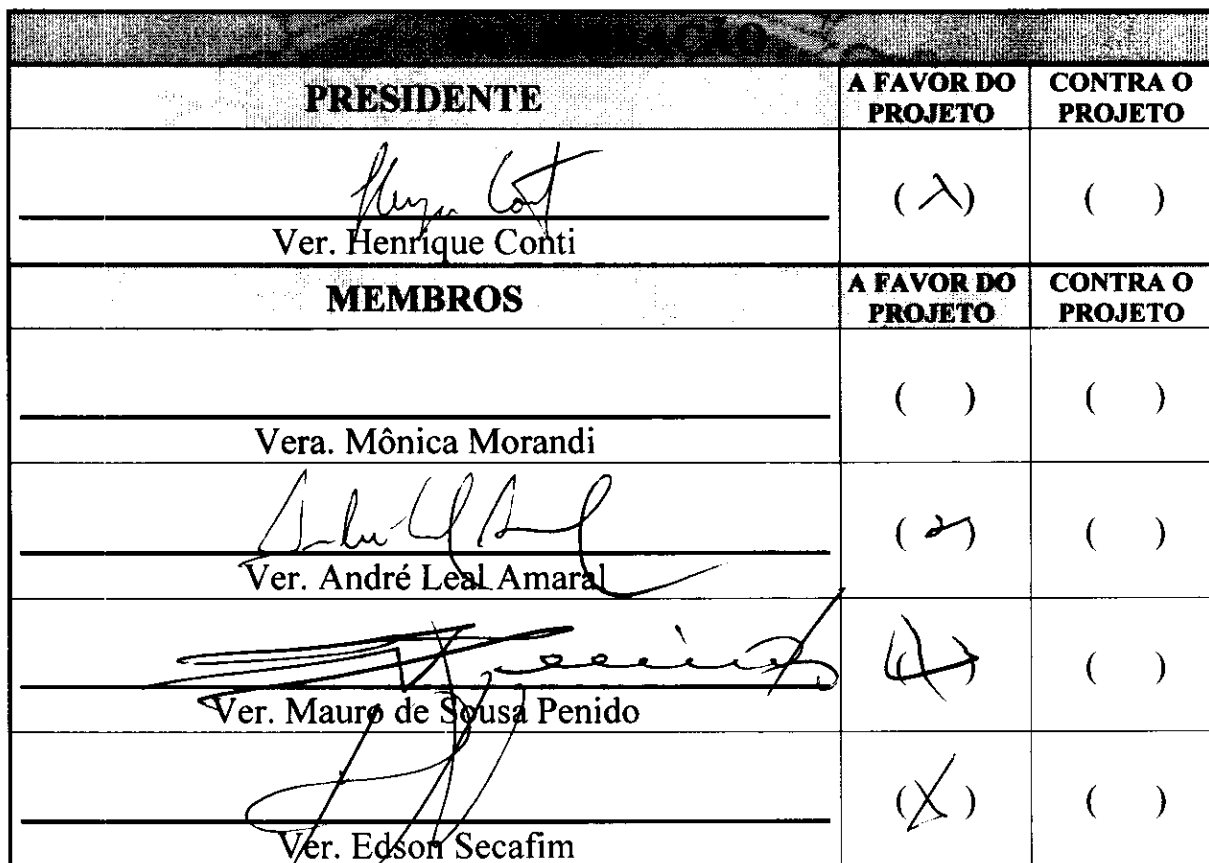 PRESIDENTE
A FAVOR DO PROJETO
CONTRA O PROJETO
( X )
( )
Ver. Henrique Conti
MEMBROS
A FAVOR DO PROJETO
CONTRA O PROJETO
( )
( )
Vera. Mônica Morandi
( )
( )
Ver. André Leal Amaral
( )
( )
Ver. Mauro de Sousa Penido
( X )
( )
Ver. Edson Secafim